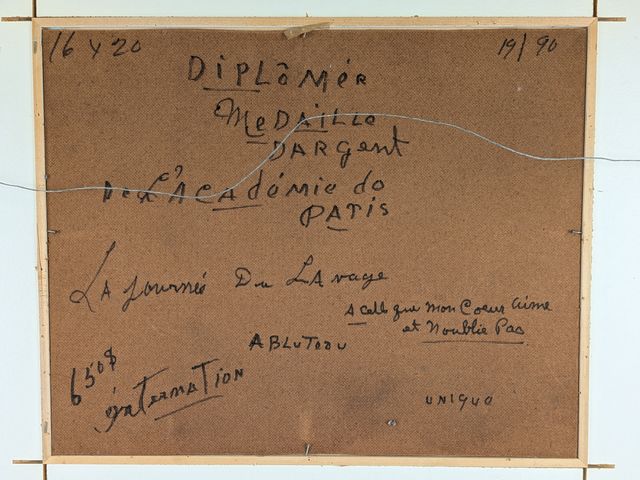 16 x 20
19/90
DIPLÔMÉR
MeDAiLLe
DARgent
De L'ACAdémie de
PARis
LA journée Du LAvage
A celle que mon Coeur Aime
et N'oublie Pas
A BLuTeau
650$
internATion
uNiQUe